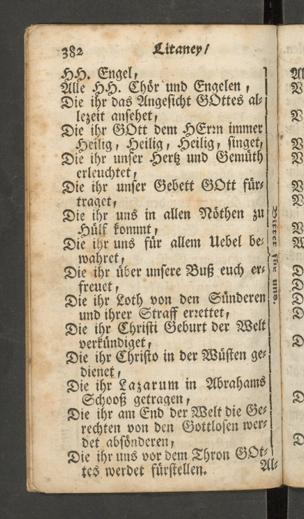 382 Litaney/
HH. Engel,
Alle HH. Chör und Engelen,
Die ihr das Angesicht GOttes al-
lezeit ansehet,
Die ihr GOtt dem HErrn immer
Heilig, Heilig, Heilig, singet,
Die ihr unser Hertz und Gemüth
erleuchtet,
Die ihr unser Gebett GOtt für-
traget,
Die ihr uns in allen Nöthen zu
Hülf kommt,
Die ihr uns für allem Uebel be-
wahret,
Die ihr über unsere Buß euch er-
freuet,
Die ihr Loth von den Sünderen
und ihrer Straff errettet,
Die ihr Christi Geburt der Welt
verkündiget,
Die ihr Christo in der Wüsten ge-
dienet,
Die ihr Lazarum in Abrahams
Schooß getragen,
Die ihr am End der Welt die Ge-
rechten von den Gottlosen wer-
det absönderen,
Die ihr uns vor dem Thron GOt-
tes werdet fürstellen.
Al-
Bittet für uns.